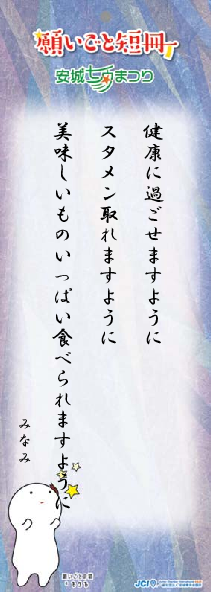 願いごと短冊
安城七夕まつり
健康に過ごせますように
スタメン取れますように
美味しいものいっぱい食べられますように
みなみ
JCI